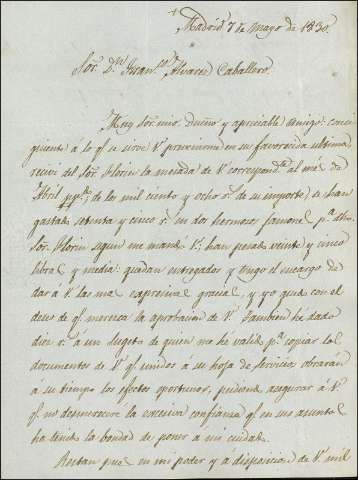 Madrid 7 de Mayo de 1830.
Sor. Dn. Juan Alvarez Caballero.
Muy Sor. mio dueño y apreciable amigo: consi
guiente a lo qe. se sirve V. prevenirme en su favorecida ultima
recivi del Sor. Florin la mesada de V. correspondte. al mes de
Abril ppdo.; de los mil ciento y ocho rs. de su importe, se han
gastado setenta y cinco rs. en dos hermosos jamones pa. dho.
Sor. Florin segun me mandó V.; han pesado veinte y cinco
libras y media: quedan entregados y tengo el encargo de
dar á V. las mas expresivas gracias, y yo quedo con el
deseo de qe. merezca la aprobacion de V. Tambien he dado
diez rs. á un sugeto de quien me he valido pa. copiar los
documentos de V. qe. unidos á su hoja de servicios obrarán
á su tiempo los efectos oportunos, pudiendo asegurar á V.
qe. no desmerecere la excesiva confianza qe. en sus asuntos
ha tenido la bondad de poner á mi cuidado.
Restan pues en mi poder y á disposicion de V. mil